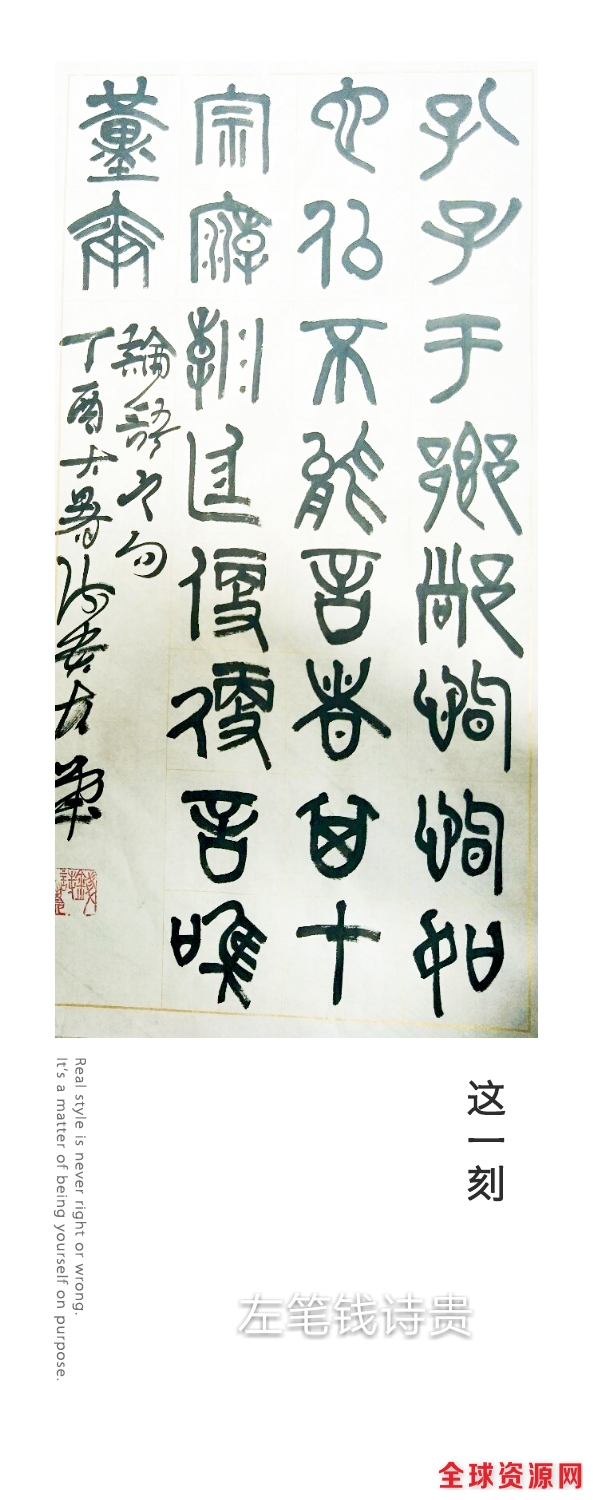 孔子于鄉黨恂恂如
也似不能言者其才
宗廟朝廷便便言唯
堇尔
論語之句
丁酉大暑诗贵左筆
这一刻
Real style is never right or wrong.
It's a matter of being yourself on purpose.
左笔钱诗贵
全球资源网